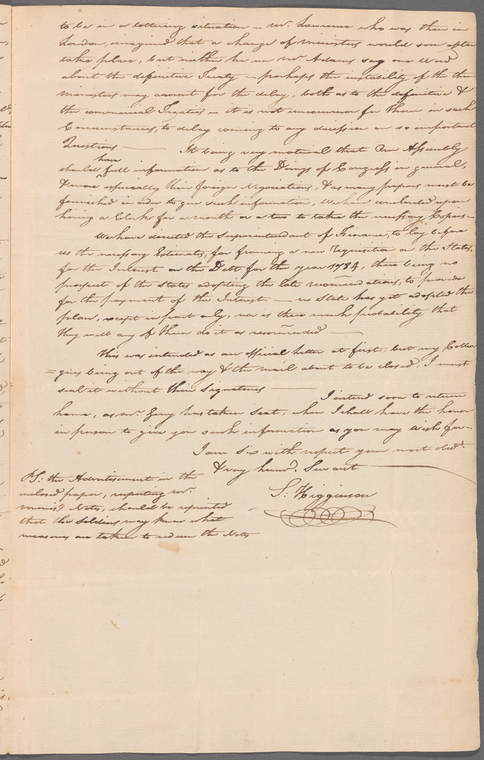 to be in a tottering situation – Mr. Laurens who was then in
London, imagined that a change of Ministers would soon after
take place, but neither he nor Mr. Adams say one Word
about the definitive Treaty – perhaps the instability of the then
Ministers may account for the delay, both as to the definitive &
the commercial Treaties – it is not uncommon for them in such
Circumstances, to delay coming to any decision on so important
Questions –– It being very material that Our Assembly
should have full information as to the Doings of Congress in general,
& more especially their foreign Negociations, & as many papers must be
furnished in order to give such information, We have concluded upon
having a Clerk for a month or a two to take the necessary Copies –
We have directed the Superintendant of Finance, to lay before
us the necessary Estimates, for framing a new Requisition on the States,
for the Interest on the Debt for the year 1784, there being no
prospect of the States adopting the late recommendations, to provide
for the payment of the Interest – no State has yet adopted the
plan, except in part only, nor is there much probability that
they will any of them do it as recommended ––
This was intended as an official letter at first, but my Collea-
=gues being out of the way & the mail about to be closed, I must
seal it without their signatures ––
I intend soon to return
home, as Mr. Gerry has taken Seat, when I shall have the honor
in person to give you such information as you may wish for –
I am Sir with respect your most obedt.
& very humb. Servant
S. Higginson
PS. the Advertisement in the
inclosed paper, respecting Mr.
Morris's Notes, should be reprinted
that the Soldiers may know what
measures are taken to redeem the Notes